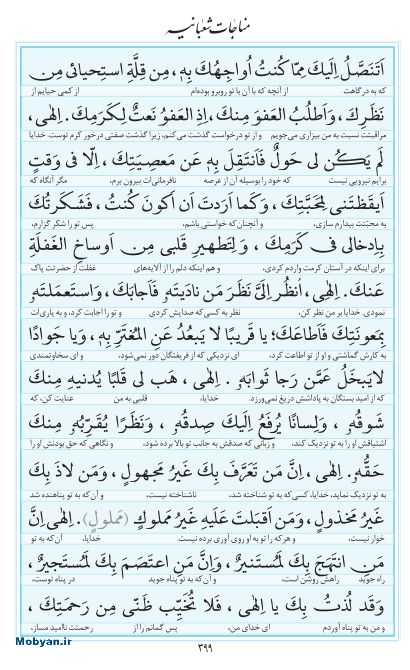 مناجات شعبانیه
اَتَنَصَّلُ اِلَیكَ مِمّا كُنتُ اُواجِهُكَ بِهٖ، مِن قِلَّةِ استِحیائی مِن
که به درگاهت از آنچه که با آن با تو روبرو بوده‌ام از کمی حیایم از
نَظَرِكَ، وَاَطلُبُ العَفوَ مِنكَ، اِذِ العَفوُ نَعتٌ لِكَرَمِكَ. اِلٰهی،
مراقبتت نسبت به من بیزاری می‌جویم و از تو درخواست گذشت می‌کنم، زیرا گذشت صفتی درخور کرم توست. خدایا
لَم یَكُن لی حَولٌ فَاَنتَقِلَ بِهٖ عَن مَعصِیَتِكَ، اِلّا فی وَقتٍ
برایم نیرویی نیست که خود را بوسیله آن از عرصه نافرمانی‌ات بیرون برم، مگر آنگاه که
اَیقَظتَنی لِمَحَبَّتِكَ، وَكَما اَرَدتَ اَن اَكونَ كُنتُ، فَشَكَرتُكَ
به محبّتت بیدارم سازی، و آنچنان که خواستی باشم، پس تو را شکر گزارم،
بِاِدخالی فی كَرَمِكَ، وَلِتَطهیرِ قَلبی مِن اَوساخِ الغَفلَةِ
برای اینکه در آستان کرمت واردم کردی، و هم اینکه دلم را از آلایه‌های غفلت از حضرتت پاک
عَنكَ. اِلٰهی، اُنظُر اِلَیَّ نَظَرَ مَن نادَیتَهٗ فَاَجابَكَ، وَاستَعمَلتَهٗ
نمودی. خدایا بر من نظر کن، نظر به کسی که صدایش کردی و تو را اجابت کرد، و به یاری‌ات
بِمَعونَتِكَ فَاَطاعَكَ؛ یا قَریبًا لا یَبعُدُ عَنِ المُغتَرِّ بِهٖ، وَیا جَوادًا
به کارش گماشتی و او از تو اطاعت کرد، ای نزدیکی که از فریفتگان دور نمی‌شود، و ای سخاوتمندی
لایَبخَلُ عَمَّن رَجا ثَوابَهٗ. اِلٰهی، هَب لی قَلبًا یُدنیهِ مِنكَ
که از امید بستگان به پاداشش دریغ نمی‌ورزد. خدایا، قلبی به من عنایت کن، که
شَوقُهٗ، وَلِسانًا یُرفَعُ اِلَیكَ صِدقُهٗ، وَنَظَرًا یُقَرِّبُهٗ مِنكَ
اشتیاقش او را به تو نزدیک کند، و زبانی که صدقش به جانب تو بالا برده شود، و نگاهی که حق بودنش او را
حَقُّهٗ. اِلٰهی، اِنَّ مَن تَعَرَّفَ بِكَ غَیرُ مَجهولٍ، وَمَن لاذَ بِكَ
به تو نزدیک نماید، خدایا، کسی‌که به تو شناخته شد، ناشناخته نیست، و آن‌که به تو پناهنده شد
غَیرُ مَخذولٍ، وَمَن اَقبَلتَ عَلَیهِ غَیرُ مَملوكٍ (مَملولٍ). اِلٰهی اِنَّ
خوار نیست، و هرکه را تو به او روی آوری برده نیست. خدایا، آن‌که به تو
مَنِ انتَهَجَ بِكَ لَمُستَنیرٌ، وَاِنَّ مَنِ اعتَصَمَ بِكَ لَمُستَجیرٌ،
راه جوید راهش روشن است، و آن‌که به تو پناه جوید در پناه توست،
وَقَد لُذتُ بِكَ یا اِلٰهی، فَلا تُخَیِّب ظَنّی مِن رَحمَتِكَ،
و من به تو پناه آوردم ای خدای من، پس گمانم را از رحمتت ناامید مساز،
۳۹۹
Mobyan.ir